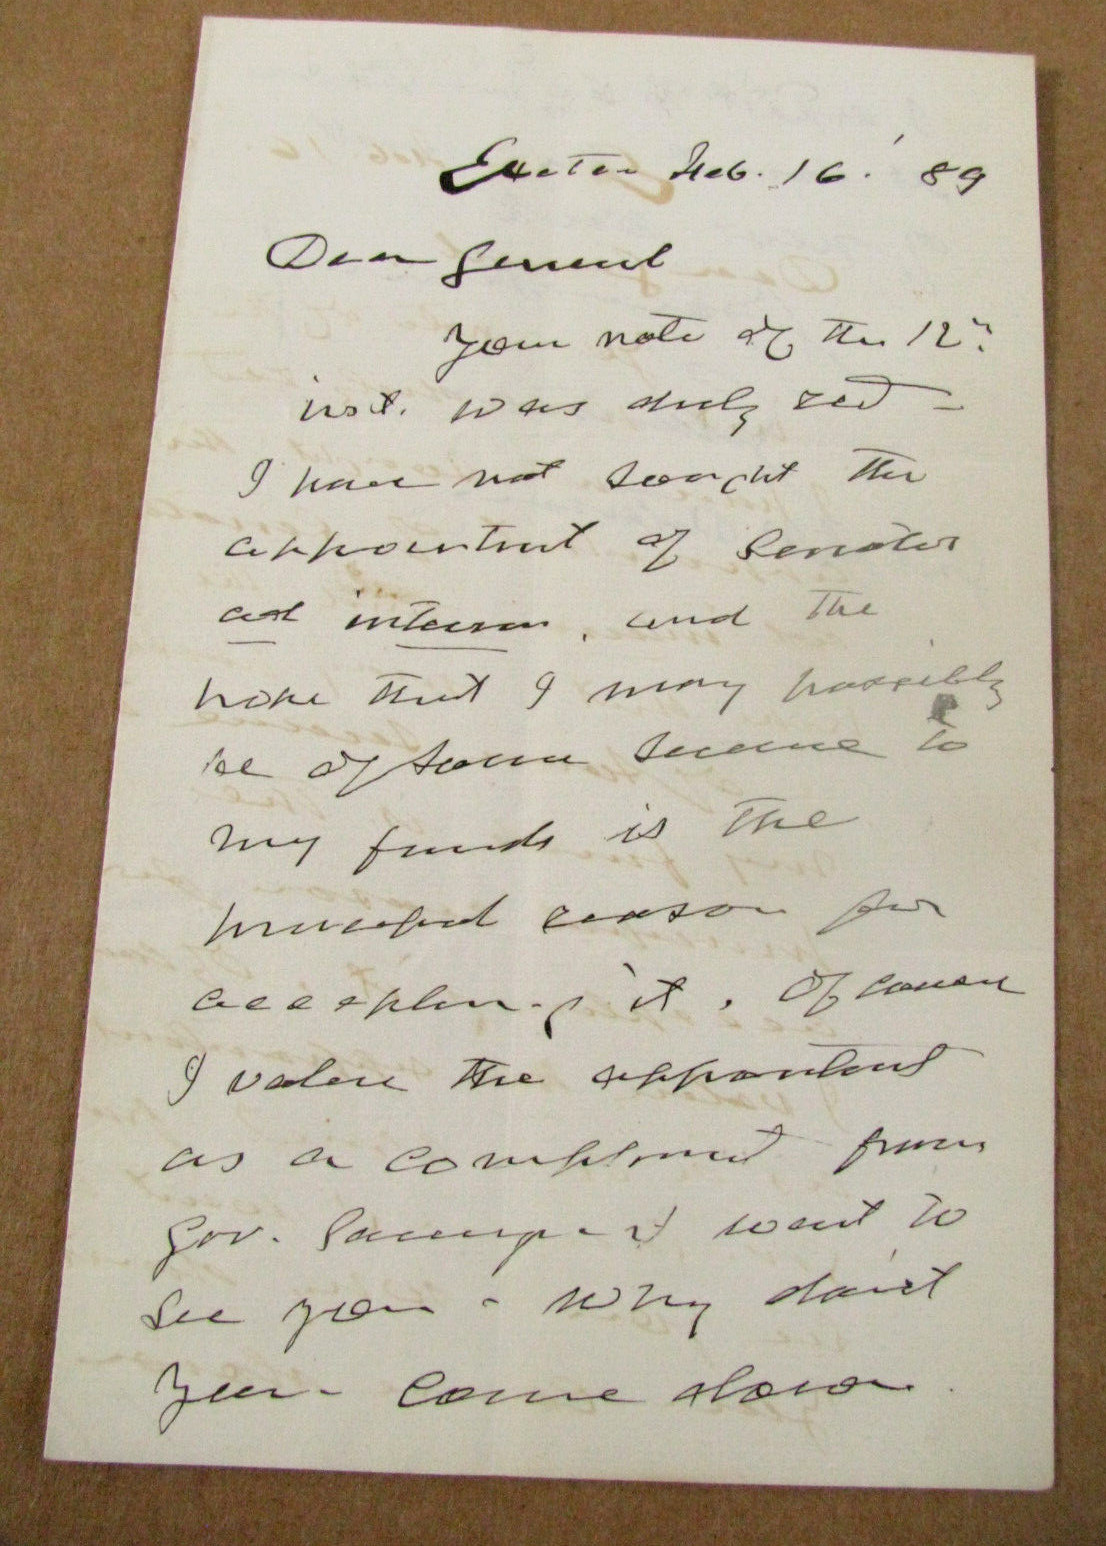 Exeter Feb. 16. '89
Dear General
Your note of the 12"
inst. was duly recd –
I have not sought the
appointment of Senator
ad interim, and the
hope that I may possibly
be of some service to
my friends is the
principal reason for
accepting it. Of course
I value the appointment
as a compliment from
Gov. Sawyer – I want to
see you – Why don't
you – come down.